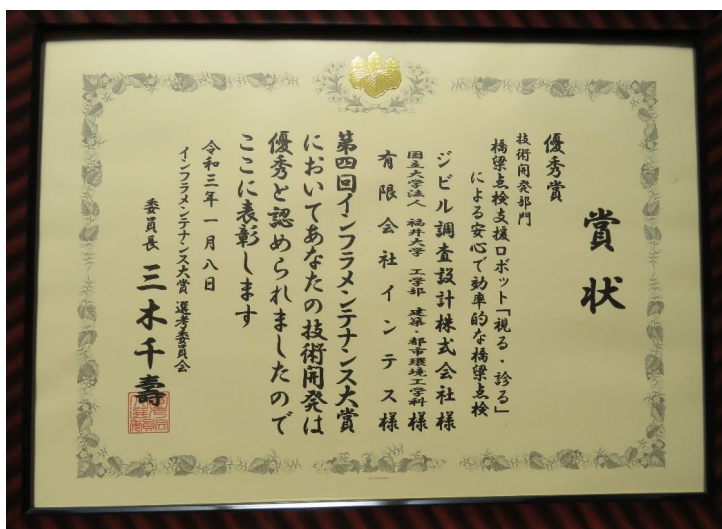 賞状
優秀賞
技術開発部門
橋梁点検支援ロボット「視る・診る」
による安心で効率的な橋梁点検
ジビル調査設計株式会社様
国立大学法人 福井大学 工学部 建築・都市環境工学科様
有限会社インテス様
第四回インフラメンテナンス大賞
においてあなたの技術開発は
優秀と認められましたので
ここに表彰します
令和三年一月八日
インフラメンテナンス大賞 選考委員会
委員長 三木千壽